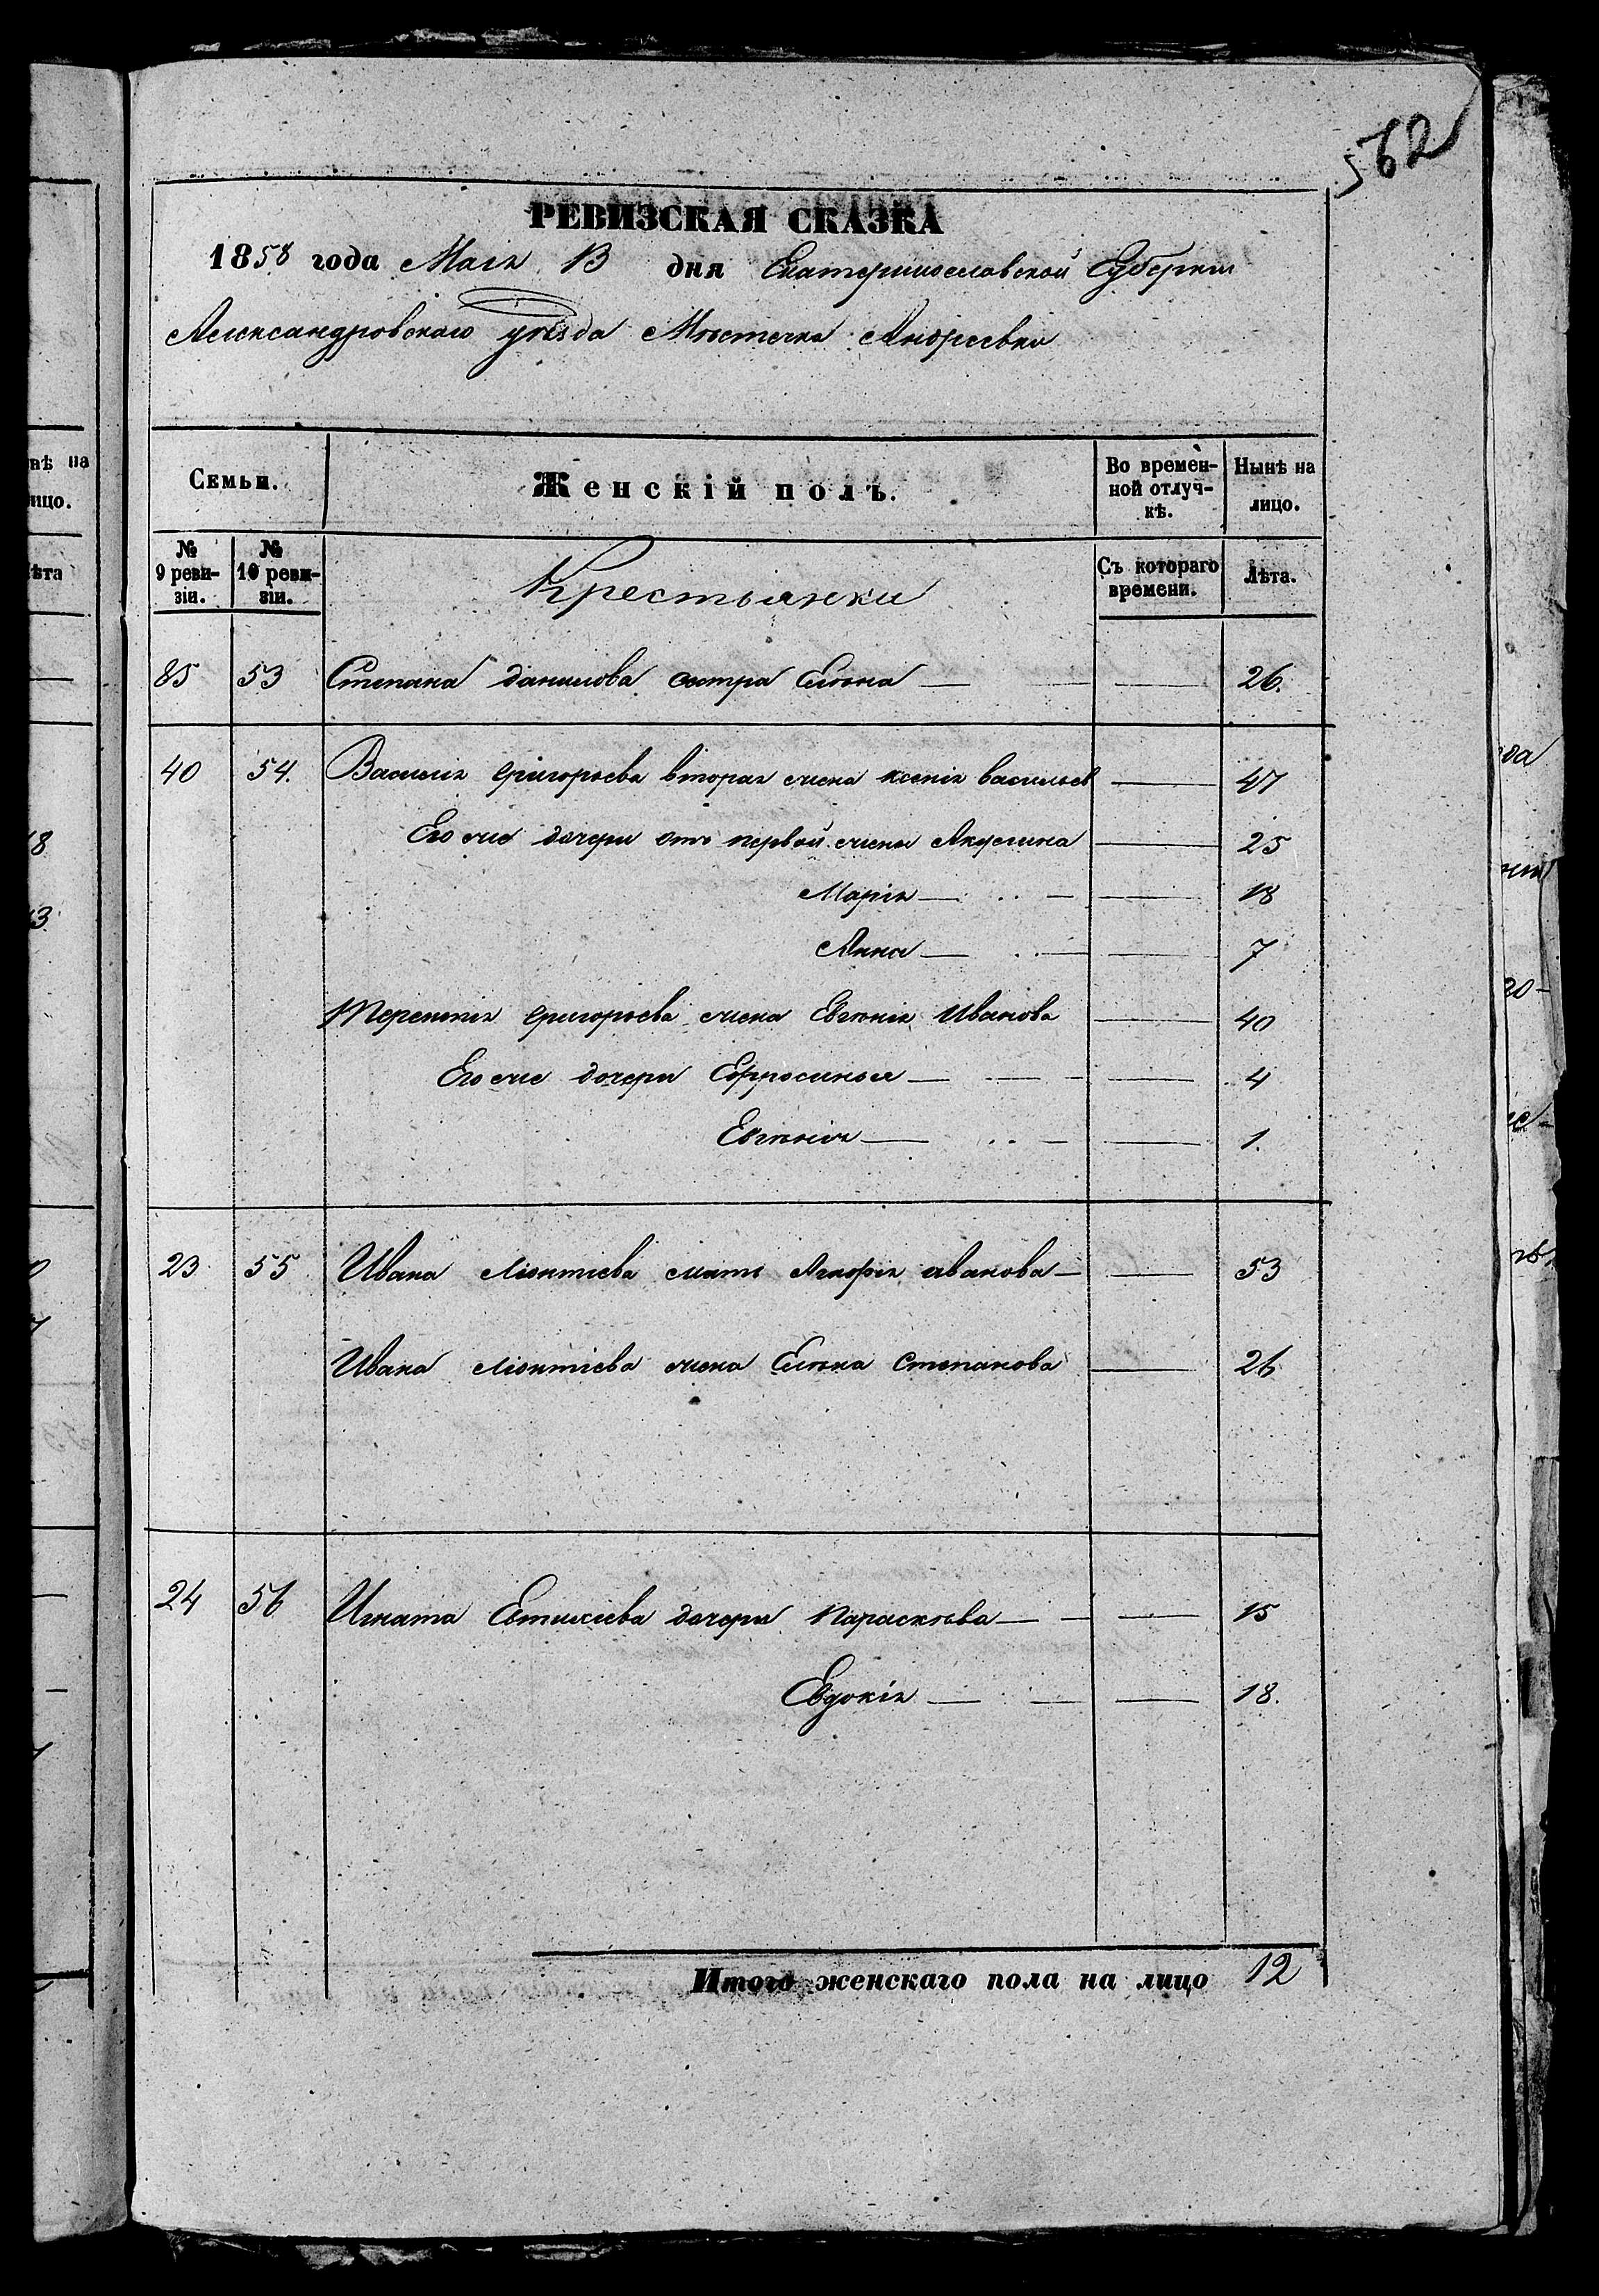 562
РЕВИЗСКАЯ СКАЗКА
1858 года Маія 13 дня Екатеринославской Губерніи
Александровскаго уѣзда Мѣстечка Андреевки
Семьи. Женскій полъ. Во времен- Нынѣ на
ной отлуч- лицо.
кѣ.
№ № Крестьянки Съ котораго Лѣта.
9 реви- 10 реви- времени.
зіи. зіи.
85 53 Степана данилова сестра Елена — — 26.
40 54. Василія григорьева вторая жена ксенія васильев — 47
Его же дочери отъ первой жены Акулина — 25
Марія — — 18
Анна — — 7
Терентія григорьева жена Евгенія Иванова — 40
Его же дочери Ефросинья — — 4
Евгенія — — 1.
23 55 Ивана Леонтіева мать иванова — — 53
Ивана леонтіева жена Елена Степанова — 26
24 56 Игната Евтихіева дочери параскѣва — — 15
Евдокія — — 18.
Итого женскаго пола на лицо 12